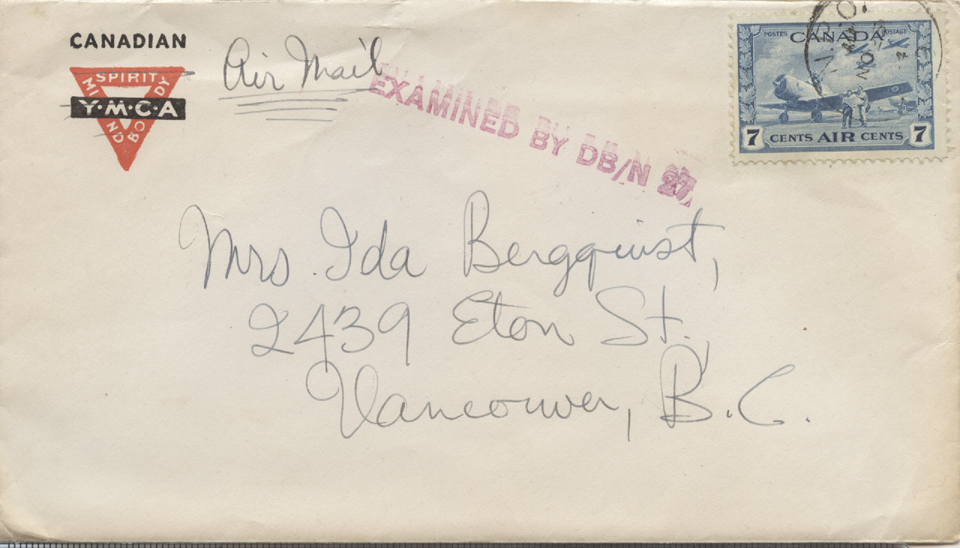 CANADIAN
SPIRIT
MIND
BODY
Y·M·C·A
Air Mail
EXAMINED BY DB/N 27
POSTES POSTAGE
CANADA
7 CENTS AIR CENTS 7
Mrs Ida Bergquist,
2439 Eton St.,
Vancouver, B.C.